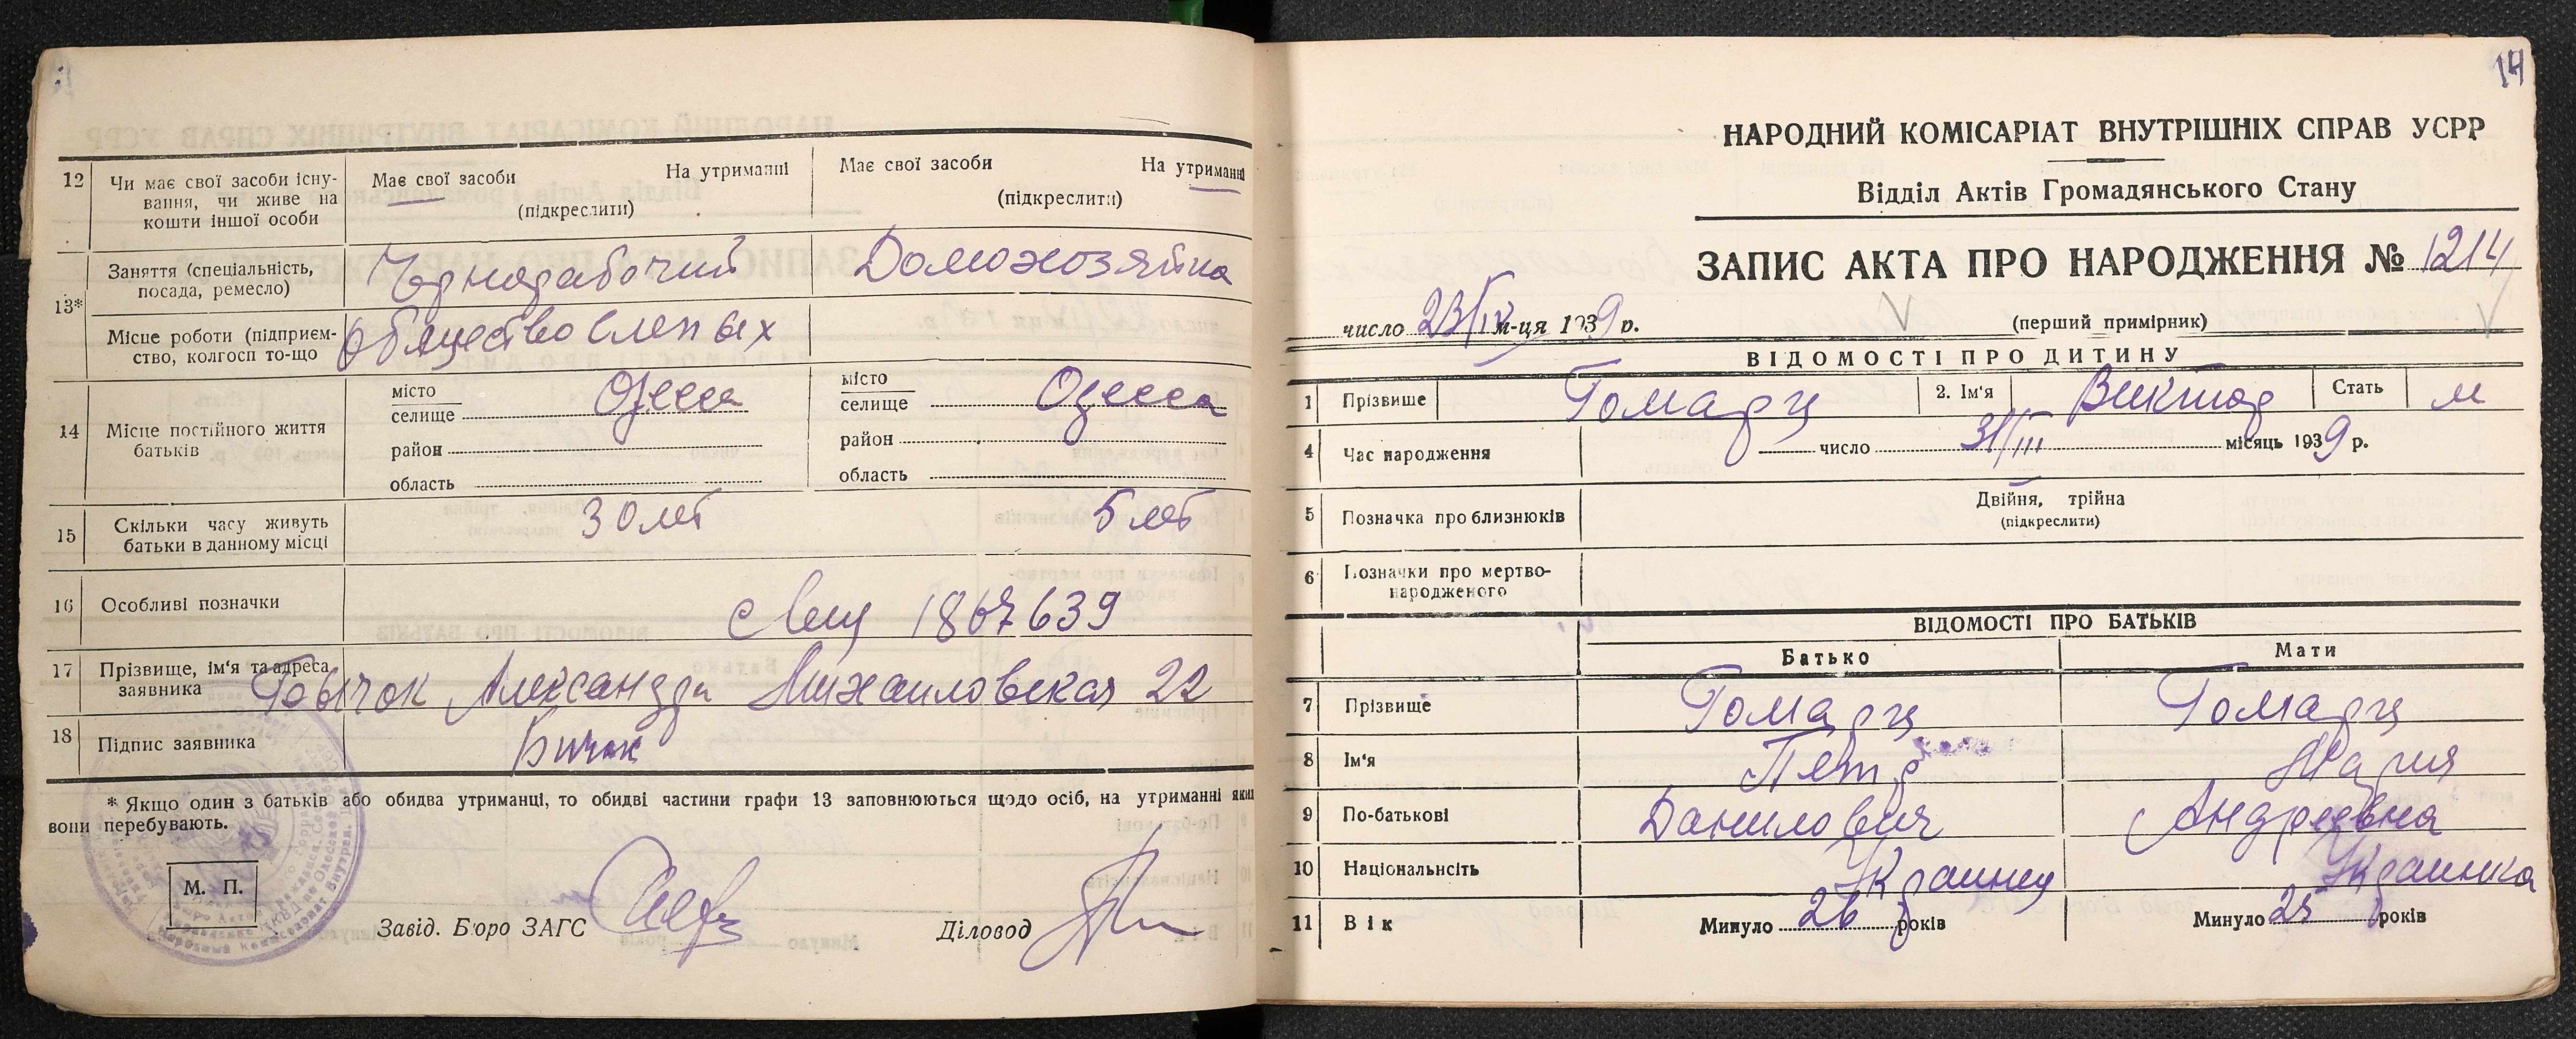 12 Чи має свої засоби існу-
вання, чи живе на
кошти іншої особи
Має свої засоби На утриманні
(підкреслити)
Має свої засоби На утриманні
(підкреслити)
13*
Заняття (спеціальність,
посада, ремесло)
Чернорабочий Домохозяйка
Місце роботи (підприєм-
ство, колгосп то-що
общество слепых
14 Місце постійного життя
батьків
місто
селище Одесса
район
область
місто
селище Одесса
район
область
15 Скільки часу живуть
батьки в данному місці
30 лет 5 лет
16 Особливі позначки
1867639
17 Прізвище, ім'я та адреса
заявника
Александра Михайловская 22
18 Підпис заявника
Бичок
* Якщо один з батьків або обидва утриманці, то обидві частини графи 13 заповнюються щодо осіб, на утриманні яких
вони перебувають.
М. П.
Завід. Бюро ЗАГС
Діловод
14
НАРОДНИЙ КОМІСАРІАТ ВНУТРІШНІХ СПРАВ УСРР
Відділ Актів Громадянського Стану
ЗАПИС АКТА ПРО НАРОДЖЕННЯ № 1214
число 23/IV м-ця 1939 р.
(перший примірник)
ВІДОМОСТІ ПРО ДИТИНУ
1 Прізвище Гомарц 2. Ім'я Виктор Стать м
4 Час народження число 31/III місяць 1939 р.
5 Позначка про близнюків
Двійня, трійна
(підкреслити)
6 Позначки про мертво-
народженого
ВІДОМОСТІ ПРО БАТЬКІВ
Батько Мати
7 Прізвище Гомарц Гомарц
8 Ім'я Петр Мария
9 По-батькові Данилович Андреевна
10 Національність Украинец Украинка
11 Вік Минуло 26 років Минуло 25 років